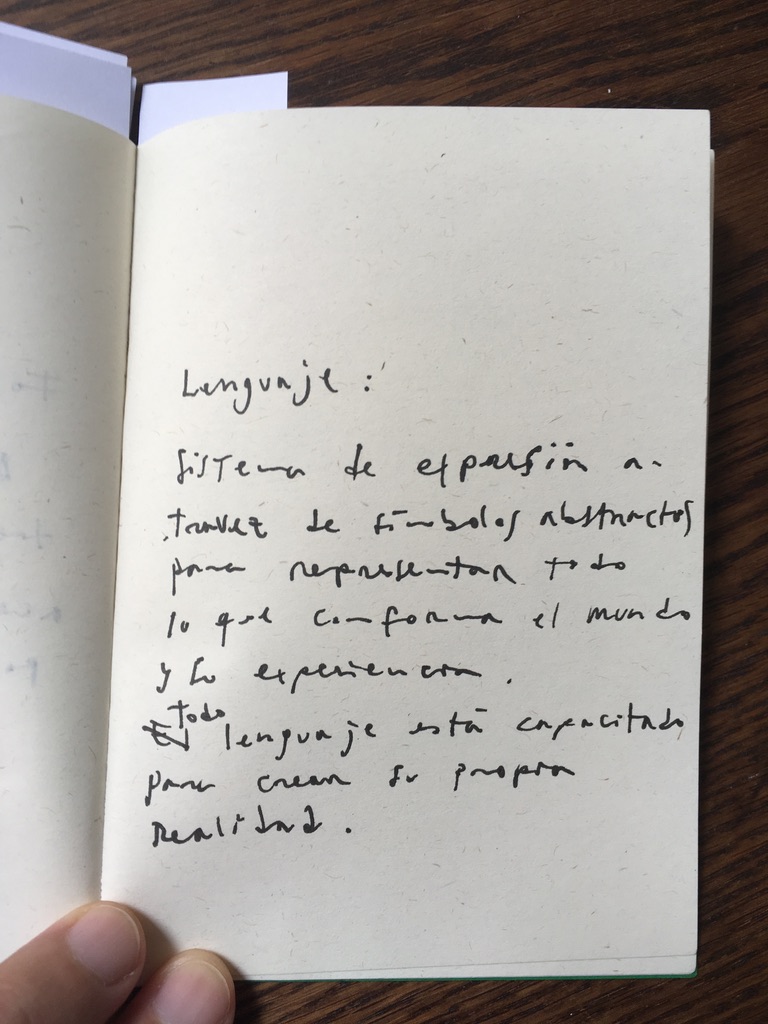 Lenguaje :
Sistema de expresión a-
travez de símbolos abstractos
para representar todo
lo que conforma el mundo
y la experiencia.
Todo
lenguaje está capacitado
para crear su propia
realidad.